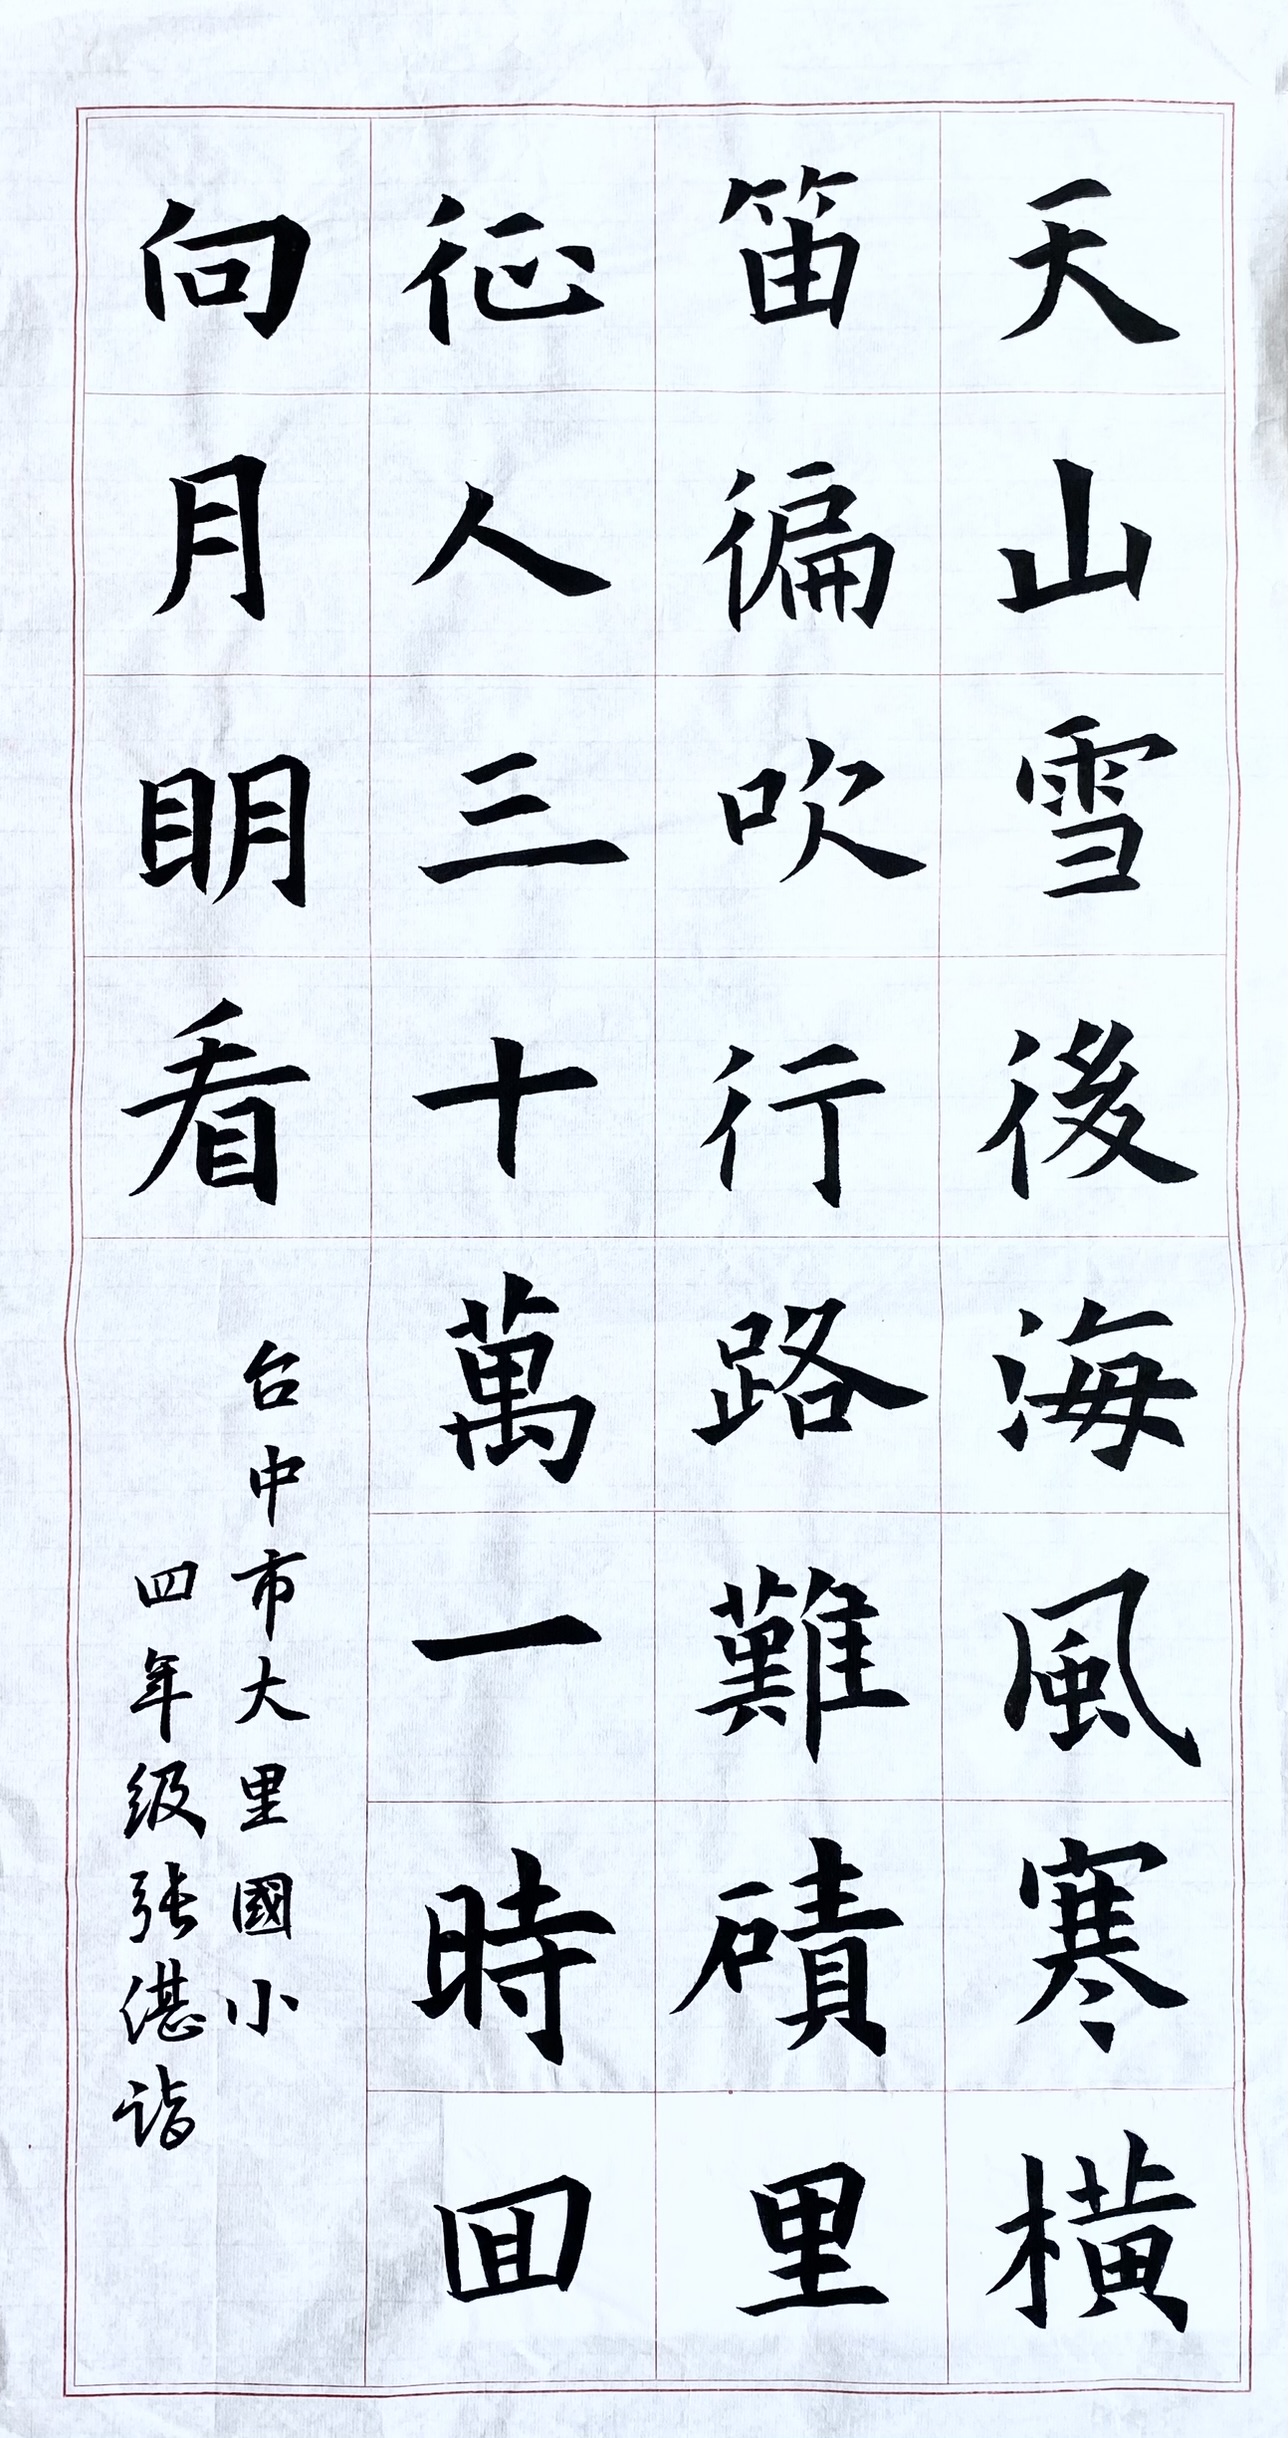 天山雪後海風寒橫
笛徧吹行路難磧里
征人三十萬一時回
向月明看
台中市大里國小
四年级張湛詣